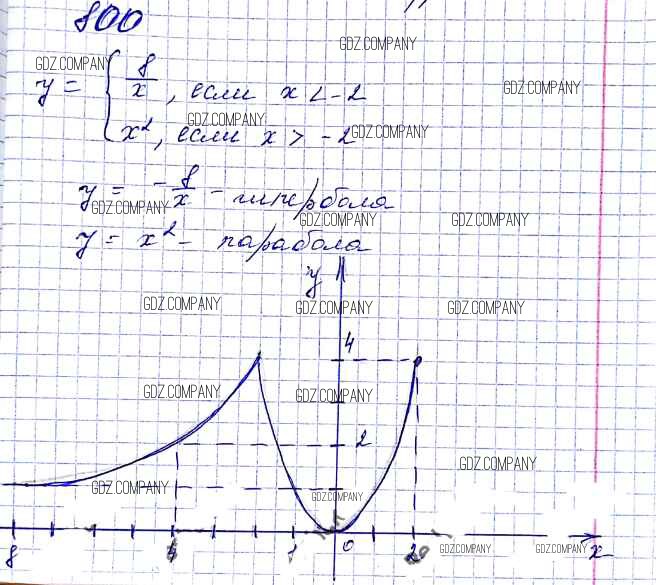 800
GDZ.COMPANY GDZ.COMPANY GDZ.COMPANY
y = { 8/x, если x < -2
GDZ.COMPANY GDZ.COMPANY
x², если x > -2
y = -8/x - гипербола
GDZ.COMPANY GDZ.COMPANY GDZ.COMPANY
y = x² - парабола
y
GDZ.COMPANY GDZ.COMPANY GDZ.COMPANY
4
GDZ.COMPANY GDZ.COMPANY
2
GDZ.COMPANY
GDZ.COMPANY GDZ.COMPANY
8 1 0 2 x
GDZ.COMPANY GDZ.COMPANY